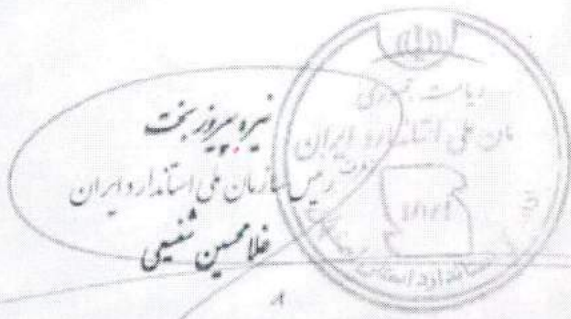 نیره پیروزبخت
رئیس سازمان ملی استاندارد ایران
غلامحسین شفیعی
ریاست جمهوری
مان ملی استاندارد ایران